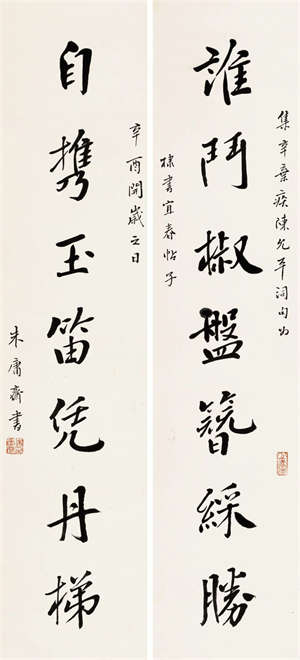 集辛棄疾陳允平詞句为
誰鬥椒盤簪綵勝
棣書宜春帖子
辛酉開歲之日
自携玉笛凭丹梯
朱庸齋書